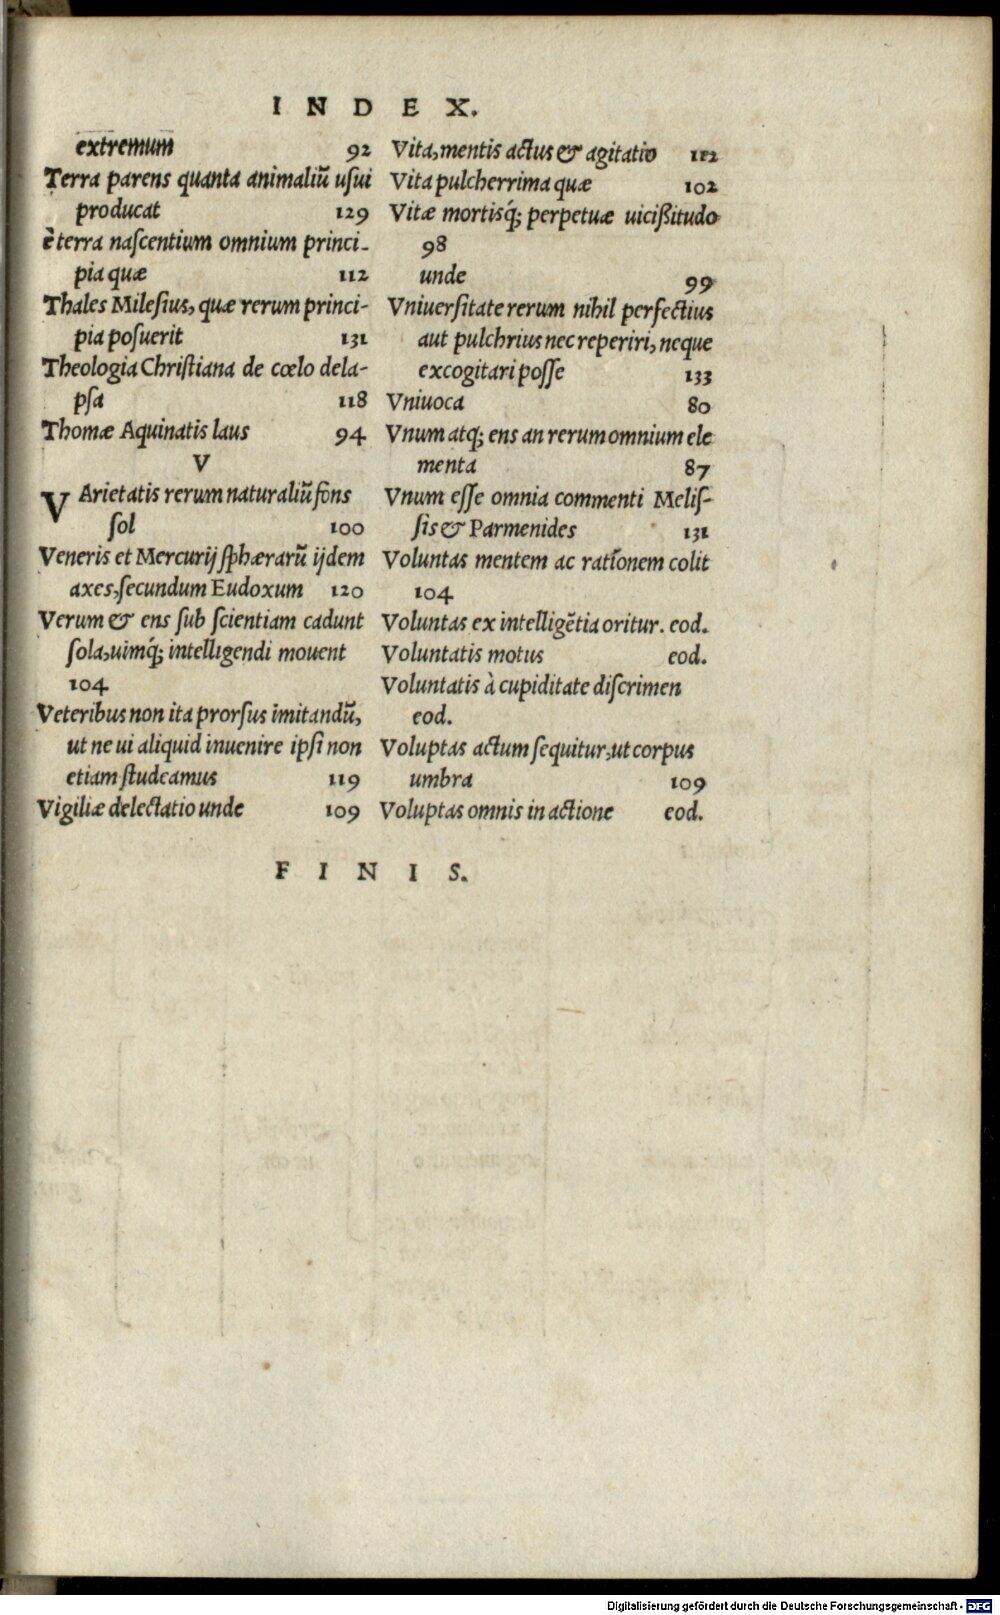 INDEX.
extremum 92
Terra parens quanta animaliũ uſui
producat 129
è terra naſcentium omnium princi-
pia quæ 112
Thales Mileſius, quæ rerum princi-
pia poſuerit 131
Theologia Chriſtiana de cœlo dela-
pſa 118
Thomæ Aquinatis laus 94
V
VArietatis rerum naturaliũ fons
ſol 100
Veneris et Mercurij ſphærarũ ijdem
axes, ſecundum Eudoxum 120
Verum & ens ſub ſcientiam cadunt
ſola, uimq́; intelligendi mouent
104
Veteribus non ita prorſus imitandũ,
ut ne ui aliquid inuenire ipſi non
etiam ſtudeamus 119
Vigiliæ delectatio unde 109
Vita, mentis actus & agitatio 112
Vita pulcherrima quæ 102
Vitæ mortisq́; perpetuæ uicißitudo
98
unde 99
Vniuerſitate rerum nihil perfectius
aut pulchrius nec reperiri, neque
excogitari poſſe 133
Vniuoca 80
Vnum atq; ens an rerum omnium ele
menta 87
Vnum eſſe omnia commenti Meliſ-
ſis & Parmenides 131
Voluntas mentem ac rationem colit
104
Voluntas ex intelligẽtia oritur. eod.
Voluntatis motus eod.
Voluntatis à cupiditate diſcrimen
eod.
Voluptas actum ſequitur, ut corpus
umbra 109
Voluptas omnis in actione eod.
FINIS.
Digitalisierung gefördert durch die Deutsche Forschungsgemeinschaft - DFG